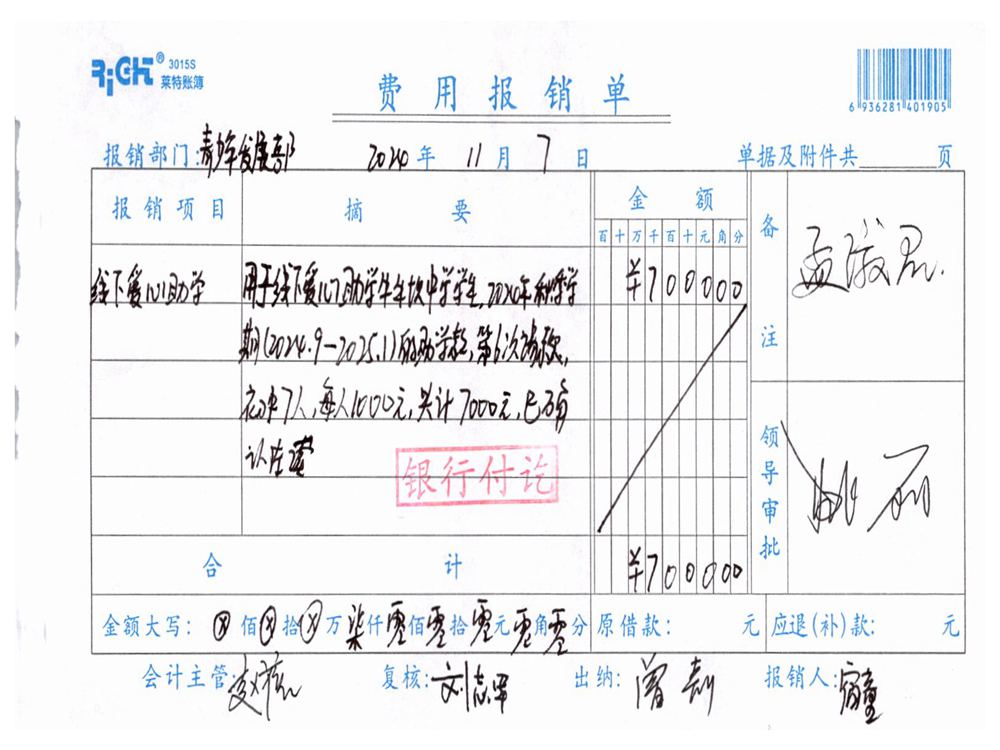 RiGHT® 3015S
莱特账簿
费用报销单
6 936281 401905
报销部门:青少年发展部 2024年11月7日 单据及附件共 页
报销项目 摘要 金额 备注
百十万千百十元角分
线下爱心助学 用于线下爱心助学 中学学生,2024年秋季学 ¥700000
期(2024.9-2025.1)的助学款,第6次拨款,
初中7人,每人1000元,共计7000元,已
银行付讫
领导审批
合计 ¥700000
金额大写:ⓧ佰ⓧ拾ⓧ万柒仟零佰零拾零元零角零分 原借款: 元 应退(补)款: 元
会计主管: 复核:刘志军 出纳: 报销人: